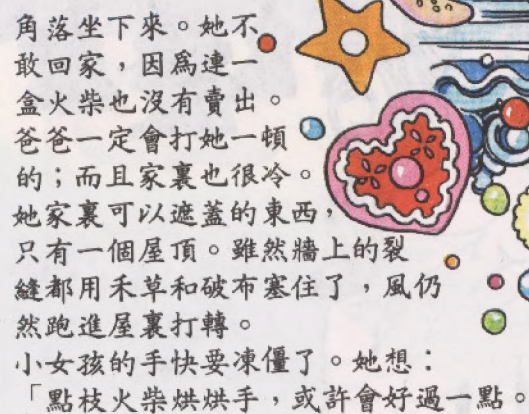 角落坐下來。她不
敢回家，因爲連一
盒火柴也沒有賣出。
爸爸一定會打她一頓
的；而且家裏也很冷。
她家裏可以遮蓋的東西，
只有一個屋頂。雖然牆上的裂
縫都用禾草和破布塞住了，風仍
然跑進屋裏打轉。
小女孩的手快要凍僵了。她想：
「點枝火柴烘烘手，或許會好過一點。